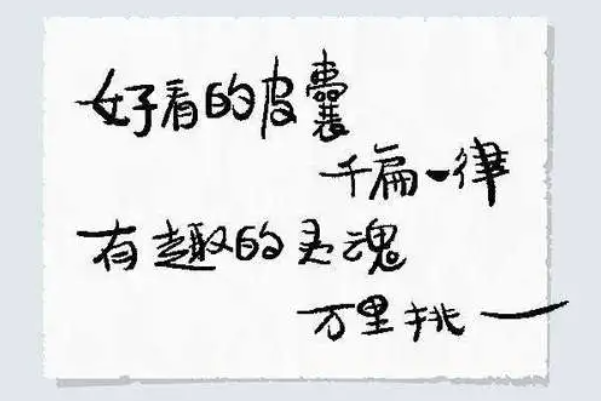 好看的皮囊
千扁一律
有趣的灵魂
万里挑一